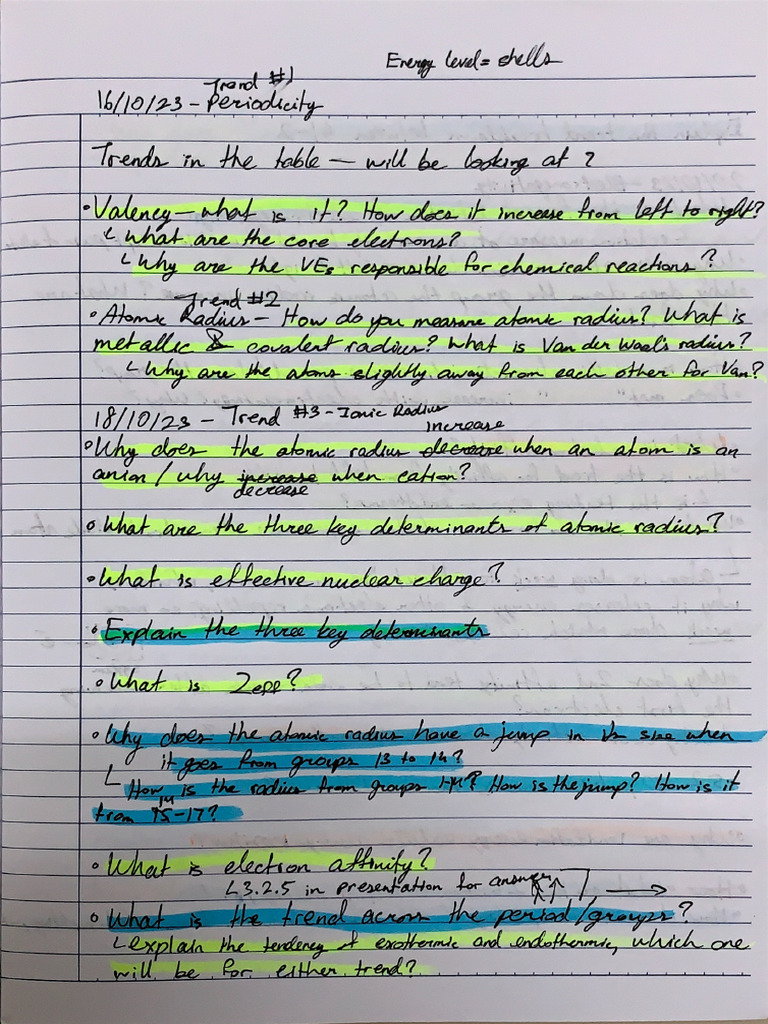 Energy level = shells
Trend #1
16/10/23 - Periodicity
Trends in the table — will be looking at ?
• Valency — what is it? How does it increase from left to right?
↳ What are the core electrons?
↳ Why are the VEs responsible for chemical reactions?
Trend #2
• Atomic Radius — How do you measure atomic radius? What is
metallic & covalent radius? What is Van der Waal's radius?
↳ Why are the atoms slightly away from each other for Van?
18/10/23 - Trend #3 - Ionic Radius
increase
• Why does the atomic radius decrease when an atom is an
anion / why increase when cation?
decrease
• What are the three key determinants of atomic radius?
• What is effective nuclear charge?
• Explain the three key determinants
• What is Zeff?
• Why does the atomic radius have a jump in its size when
it goes from groups 13 to 14?
↳ How is the radius from groups 1-14? How is the jump? How is it
14
from 15-17?
• What is electron affinity?
↳ 3.2.5 in presentation for answer
• What is the trend across the period/groups?
↳ explain the tendency of exothermic and endothermic, which one
will be for either trend?